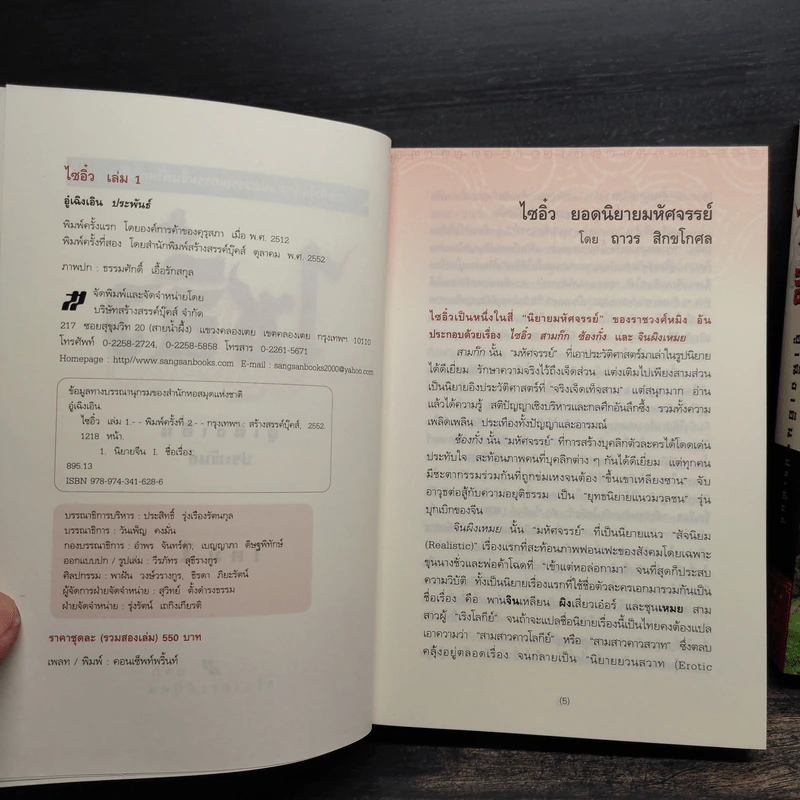 ไซอิ๋ว เล่ม 1
อู๋เฉิงเอิน ประพันธ์
พิมพ์ครั้งแรก โดยองค์การค้าของคุรุสภา เมื่อ พ.ศ. 2512
พิมพ์ครั้งที่สอง โดยสำนักพิมพ์สร้างสรรค์บุ๊คส์ ตุลาคม พ.ศ. 2552
ภาพปก : ธรรมศักดิ์ เอื้อรักสกุล
จัดพิมพ์และจัดจำหน่ายโดย
บริษัทสร้างสรรค์บุ๊คส์ จำกัด
217 ซอยสุขุมวิท 20 (สายน้ำผึ้ง) แขวงคลองเตย เขตคลองเตย กรุงเทพฯ 10110
โทรศัพท์ 0-2258-2724, 0-2258-5858 โทรสาร 0-2261-5671
Homepage : http//www.sangsanbooks.com E-mail : sangsanbooks2000@yahoo.com
ข้อมูลทางบรรณานุกรมของสำนักหอสมุดแห่งชาติ
อู๋เฉิงเอิน.
ไซอิ๋ว เล่ม 1.-- พิมพ์ครั้งที่ 2.-- กรุงเทพฯ : สร้างสรรค์บุ๊คส์, 2552.
1218 หน้า.
1. นิยายจีน I. ชื่อเรื่อง.
895.13
ISBN 978-974-341-628-6
บรรณาธิการบริหาร : ประสิทธิ์ รุ่งเรืองรัตนกุล
บรรณาธิการ : วันเพ็ญ คงมั่น
กองบรรณาธิการ : อำพร จันทร์ดา, เบญญาภา ดิษฐพิทักษ์
ออกแบบปก / รูปเล่ม : วีรภัทร สุธีรางกูร
ศิลปกรรม : พาฝัน วงษ์วรางกูร, ธิรดา ภิยะรัตน์
ผู้จัดการฝ่ายจัดจำหน่าย : สุวิทย์ ตั้งดำรงธรรม
ฝ่ายจัดจำหน่าย : รุ่งรัตน์ เถกิงเกียรติ
ราคาชุดละ (รวมสองเล่ม) 550 บาท
เพลท / พิมพ์ : คอนเซ็พท์พริ้นท์
ไซอิ๋ว ยอดนิยายมหัศจรรย์
โดย ถาวร สิกขโกศล
ไซอิ๋วเป็นหนึ่งในสี่ “นิยายมหัศจรรย์” ของราชวงศ์หมิง อัน
ประกอบด้วยเรื่อง ไซอิ๋ว สามก๊ก ซ้องกั๋ง และ จินผิงเหมย
สามก๊ก นั้น “มหัศจรรย์” ที่เอาประวัติศาสตร์มาเล่าในรูปนิยาย
ได้ดีเยี่ยม รักษาความจริงไว้ถึงเจ็ดส่วน แต่งเติมไปเพียงสามส่วน
เป็นนิยายอิงประวัติศาสตร์ที่ “จริงเจ็ดเท็จสาม” แต่สนุกมาก อ่าน
แล้วได้ความรู้ สติปัญญาเชิงบริหารและกลศึกอันลึกซึ้ง รวมทั้งความ
เพลิดเพลิน ประเทืองทั้งปัญญาและอารมณ์
ซ้องกั๋ง นั้น “มหัศจรรย์” ที่การสร้างบุคลิกตัวละครได้โดดเด่น
ประทับใจ สะท้อนภาพคนที่บุคลิกต่าง ๆ กันได้ดีเยี่ยม แต่ทุกคน
มีชะตากรรมร่วมกันที่ถูกข่มเหงจนต้อง “ขึ้นเขาเหลียงซาน” จับ
อาวุธต่อสู้กับความอยุติธรรม เป็น “ยุทธนิยายแนวมวลชน” รุ่น
บุกเบิกของจีน
จินผิงเหมย นั้น “มหัศจรรย์” ที่เป็นนิยายแนว “สัจนิยม
(Realistic)” เรื่องแรกที่สะท้อนภาพฟอนเฟะของสังคมโดยเฉพาะ
ขุนนางชั่วและพ่อค้าโฉดที่ “เช้าแต่หอล่อกามา” จนที่สุดก็ประสบ
ความวิบัติ ทั้งเป็นนิยายเรื่องแรกที่ใช้ชื่อตัวละครเอกมารวมกันเป็น
ชื่อเรื่อง คือ พานจินเหลียน ผิงเสียวเอ๋อร์ และชุนเหมย สาม
สาวผู้ “เริงโลกีย์” จนถ้าจะแปลชื่อนิยายเรื่องนี้เป็นไทยคงต้องแปล
เอาความว่า “สามสาวคาวโลกีย์” หรือ “สามสาวคาวสวาท” ซึ่งตลบ
คลุ้งอยู่ตลอดเรื่อง จนกลายเป็น “นิยายยวนสวาท (Erotic
(5)